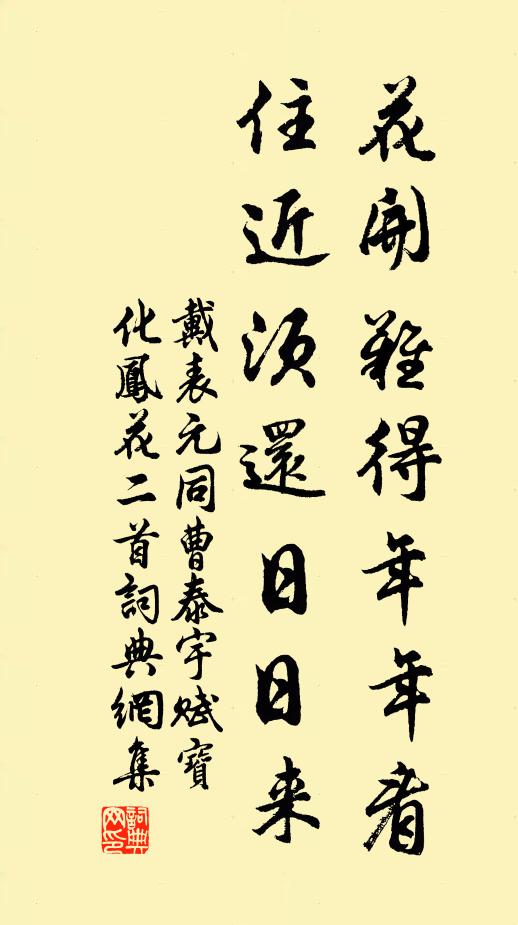 花開難得年年看
住近須還日日来
戴表元同曹泰宇賦寶
化鳳花二首詞典網集
詞典网印